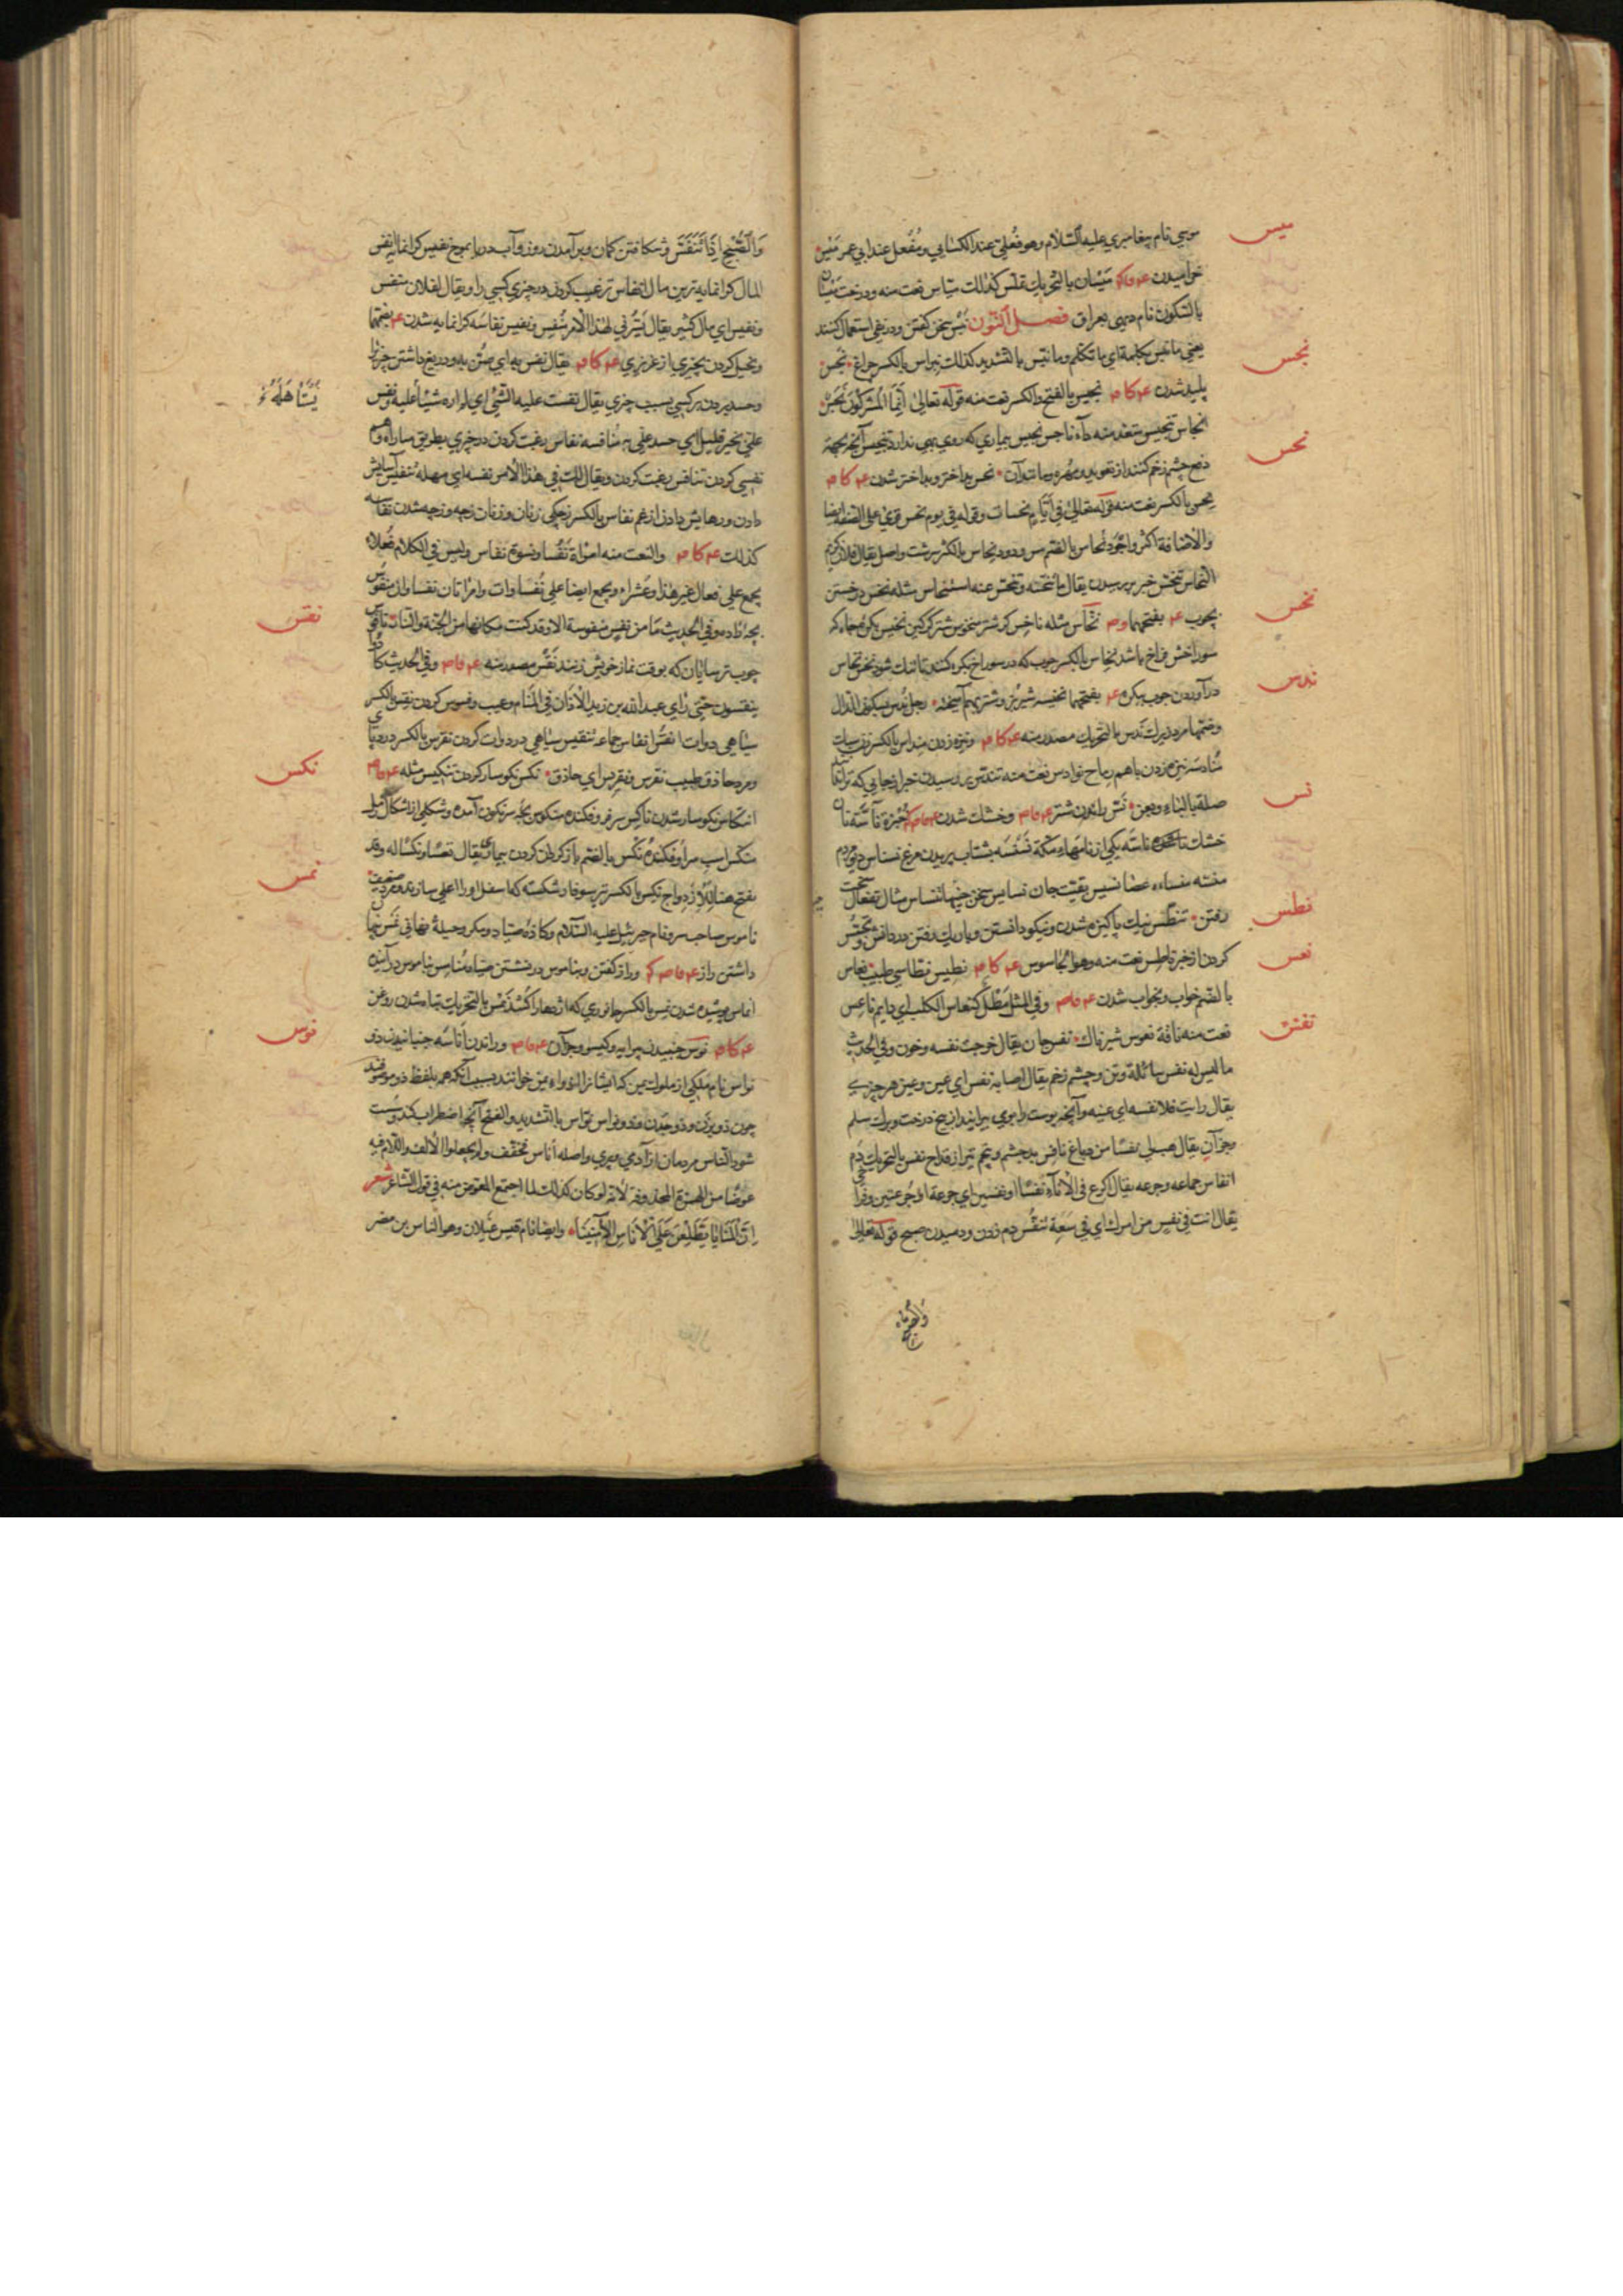 ميس
موسي نام پيغامبري عليه السّلام وهو فُعلى عند الكسايي ومُفعل عند ابي عمر مَيْس
خراميدن ع ف ك م مَيَسان بالتحريك مثله كذلك ميّاس نعت منه ودرخت مَيْسان
بالسّكون نام ديهى بعراق فصل النّون نَبْس سخن كفتن ودر نفي استعمال كنند
نجس
يعني ما نبس بكلمة اي ما تكلّم وما نبّس بالتشديد كذلك نبراس بالكسر چراغ نجس
پليد شدن ع ك ا م نجس بالفتح والكسر نعت منه قوله تعالى انّما المشركون نجس
انجاس تنجيس متعد منه داء ناجس نجيس بيماري كه روي بهى ندارد تنجيس آنچه بجهة
نحس
دفع چشم زخم كنند از تعويذ ومهره ومانند آن نحس بد اختر وبد اختر شدن ع ك ا م
نحس بالكسر نعت منه قوله تعالى في ايّام نحسات وقوله في يوم نحس قرئ على الصفة ايضا
والاضافة اكثر واجود نُحاس بالضم مس ودود نحاس بالكسر سرشت واصل يقال فلان كريم
النحاس تنحّس خبر پرسيدن يقال تنحّسته وتنحّس عنه استنحاس مثله نخس درخستن
نخس
بچوب ع بفتحهما وم نخّاس مثله ناخس كر شتر منخوس شتر كركين نخيس بكره چاه كه
سوراخش فراخ باشد نخاس بالكسر چوب كه در سوراخ بكره كنند تا تنك شود نخس نخاس
درآوردن چوب ببكره ع بفتحهما نخيسه شير بز وشتر بهم آميخته رجل ندس بسكون الدال
ندس
وضمّها مرد زيرك ندس بالتحريك مصدر منه ع ك ا م ونيزه زدن منداس بالكسر زن سبك
مُنادسه نيزه زدن باهم رماح نوادس نعت منه تندّس پرسيدن خبر از جايي كه ترا
نس
صلة بالباء وبعن نسّ راندن شتر ع ف ا م وخشك شدن ع ف ا م ك خبزة ناسّة نان
خشك ناسّه يكي از نامهاء مكّه نسنسه بشتاب پريدن مرغ نسناس ديو مردم
رفتن تنطّس نيك پاكيزه شدن ونيكو دانستن وباريك رفتن در دانش وتجسّس
نطس
كردن از خبر ناطس نعت منه وهو الجاسوس ع ك ا م نطيس نطاسي طبيب نعاس
نعس
بالضم خواب وبخواب شدن ع ف ا م وفي المثل مطل كنعاس الكلب اي دايم ناعس
نعت منه ناقة نعوس شيرناك نفس جان يقال خرجت نفسه وخون وفي الحديث
نفس
ما ليس له نفس سائلة وتن وچشم زخم يقال اصابته نفس اي عين وعين هر چيزي
يقال رايت فلانا نفسه اي عينه وآنچه پوست را بوي پيرايند از بيخ درخت وبرك سلم
وجز آن يقال هب لي نفسًا من دباغ نافس بد چشم وپنجم تير از قداح نفس بالتحريك دم
انفاس جماعه وجرعه يقال اكرع في الاناء نفسًا او نفسين اي جرعة او جرعتين وفراخي
يقال انت في نفس من امرك اي في سَعة تنفّس دم زدن ودميدن صبح قوله تعالى
والصبح
وَالصُّبْحِ اِذَا تَنَفَّسَ وشكافتن كمان وبرآمدن روز وآب دريا بموج نفيس كرانمايه انفس
المال كرانمايه ترين مال انفاس ترغيب كردن در چيزي كسي را ويقال لفلان منفس
ونفيس اي مال كثير يقال يسّرني لهذا الامر نُفِس ونفيس نفاسَه كرانمايه شدن ع بضمّهما
وبخيل كردن بچيزي از عزيزي ع ك ا م يقال نفس به اي ضنّ به ودريغ داشتن چيزي
يَسْتَاهَلُهُ
وحسد بردن بر كسي بسبب چيزي يقال نفست عليه الشئ اي لم اره شيئًا عليه ونفس
علىّ بخير قليل اي حسد علىّ به مُنافسه نفاس رغبت كردن در چيزي بطريق مباراه وهم
نفسي كردن تنافس رغبت كردن ويقال لك في هذا الامر نفسه اي مهلة تنفيس آسايش
دادن ورهايش دادن از غم نفاس بالكسر زچكي زنان وزنان زچه وزچه شدن نفاسه
كذلك ع ك ا م والنعت منه امراة نفسا ونسوة نفاس وليس في الكلام فُعلاء
يجمع على فعال غير هذا وعشراء ويجمع ايضا على نُفساوات وامراتان نفساوان منفوس
نقس
بچه زاده وفي الحديث ما من نفس منفوسة الا وقد كتبت مكانها من الجنة والنار ناقوس
چوب ترسايان كه بوقت نماز خويش زنند نقس مصدر منه ع ف ا م وفي الحديث كادوا
ينقسون حتى راى عبد الله بن زيد الاذان في المنام وعيب وفسوس كردن نقس بالكسر
سياهي دوات انقُس انقاس جماعه تنقيس سياهي در دوات كردن نقرس بالكسر درد پاي
نكس
ومرد حاذق طبيب نقرس ونقريس اي حاذق نكس نكوسار كردن تنكيس مثله ع ف ا م
انتكاس نكوسار شدن ناكس سر فروفكنده منكوس بچه سرنكون آمده وشكلى از اشكال رمل
منكّس اسپ سر فروفكنده نُكس بالضم باز كردن كردن بيماري يقال تعسًا ونكسًا له وقد
نمس
يفتح هنا للازدواج نكس بالكسر تير سوفار شكسته كه اسفل او را اعلى سازند ومرد ضعيف
ناموس صاحب سر ونام جبرئيل عليه السّلام وكازهٔ صيّاد ومكر وحيلهٔ نهاني نمس پنهان
داشتن راز ع ف ا م ك وراز كفتن وبناموس در نشستن صيّاد مُنامس بناموس درآينده
انماس پوشيده شدن نمس بالكسر جانوري كه اژدها را كُشد نَمَس بالتحريك تباه شدن روغن
نوس
ع ك ا م نوس جنبيدن پيرايه وكيسو وجز آن ع ف ا م وراندن اناسه جنبانيدن ذو
نواس نام ملكي از ملوك يمن كه ايشانرا اذواء يمن خوانند بسبب آنكه همه بلفظ ذو موصوفند
چون ذو يزن وذو جدن وذو نواس نوّاس بالتشديد والفتح آنچه اضطراب كند وسست
شود النّاس مردمان از آدمي وپري واصله اناس مخفّف ولم يجعلوا الالف واللام فيه
عوضًا من الهمزة المحذوفة لانه لو كان كذلك لما اجتمع المعوّض منه في قول الشاعر شعر
اِنَّ المَنَايَا يَطَّلِعْنَ عَلَى الاُنَاسِ الآمِنِينَا وايضا نام قيس عيلان وهو الناس بن مضر